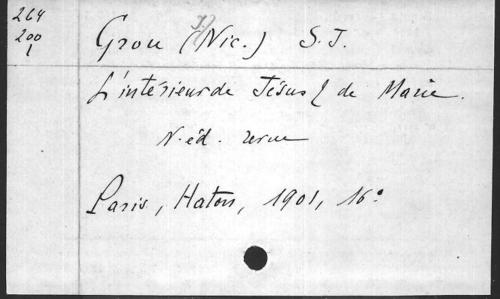 264
200
1
Grou (J. Nic.) S.J.
L'intérieur de Jésus & de Marie.
N. éd. revue
Paris, Haton, 1901, 16º